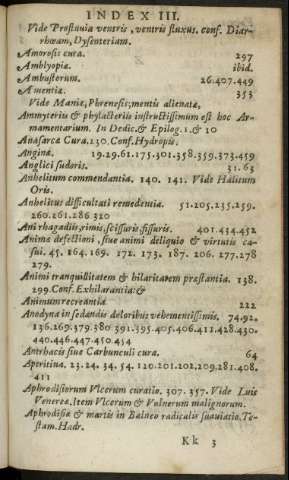 INDEX III.
Vide Profluuia ventris, ventris fluxus. conf. Diar-
rhœam, Dysenteriam.
Amorosis cura. 297
Amblyopiæ. ibid.
Ambustorum. 26.407.449
Amentia. 353
Vide Maniæ, Phrenesis; mentis alienatæ,
Amnyteriis & phylacteriis instructissimum est hoc Ar-
mamentarium. In Dedic. & Epilog. 1. & 10
Anasarca Cura. 230. Conf. Hydropis.
Anginæ. 19.29.61.175.301.358.359.373.459
Anglici sudoris. 31.63
Anhelitum commendantia. 140. 141. Vide Halitum
Oris.
Anhelitus difficultati remedentia. 51.205.235.259.
260.261.286 320
Ani rhagadiis, rimis, scissuris fissuris. 401.434.452
Animæ defectioni, siue animi deliquio & virtutis ca-
sui. 45. 164. 169. 172. 173. 187. 206. 277.278
279.
Animi tranquillitatem & hilaritatem præstantia. 138.
299. Conf. Exhilarantia: &
Animum recreantia 222
Anodyna in sedandis doloribus vehementissimis. 74.92.
136.169.379.380 391.395.405.406.411.428.430.
440.446.447.450.454
Antrhacis siue Carbunculi cura. 64
Aperitiua. 23.24.34.54.120.201.202.209.281.408.
411
Aphrodisiorum Vlcerum curatio. 307. 357. Vide Luis
Venereæ. Item Vlcerum & Vulnerum malignorum.
Aphrodisiæ & martis in Balneo radicalis suauiatio. Te-
stam. Hadr.
Kk 3